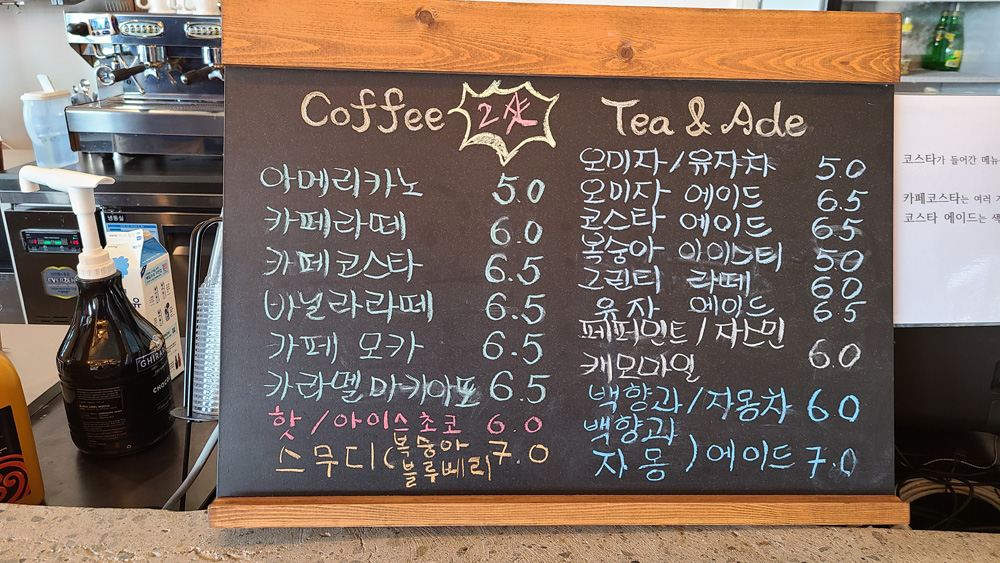 Coffee 2샷
아메리카노 5.0
카페라떼 6.0
카페코스타 6.5
바닐라라떼 6.5
카페 모카 6.5
카라멜마키아또 6.5
핫/아이스초코 6.0
스무디(복숭아
블루베리 7.0
Tea & Ade
오미자/유자차 5.0
오미자 에이드 6.5
코스타 에이드 6.5
복숭아 아이스티 5.0
그린티 라떼 6.0
유자 에이드 6.5
페퍼민트/자스민
캐모마일 6.0
백향과/자몽차 6.0
백향과
자몽 ) 에이드 7.0
코스타가 들어간 메뉴
카페코스타는 여러
코스타 에이드는
GHIRAR
CHOC